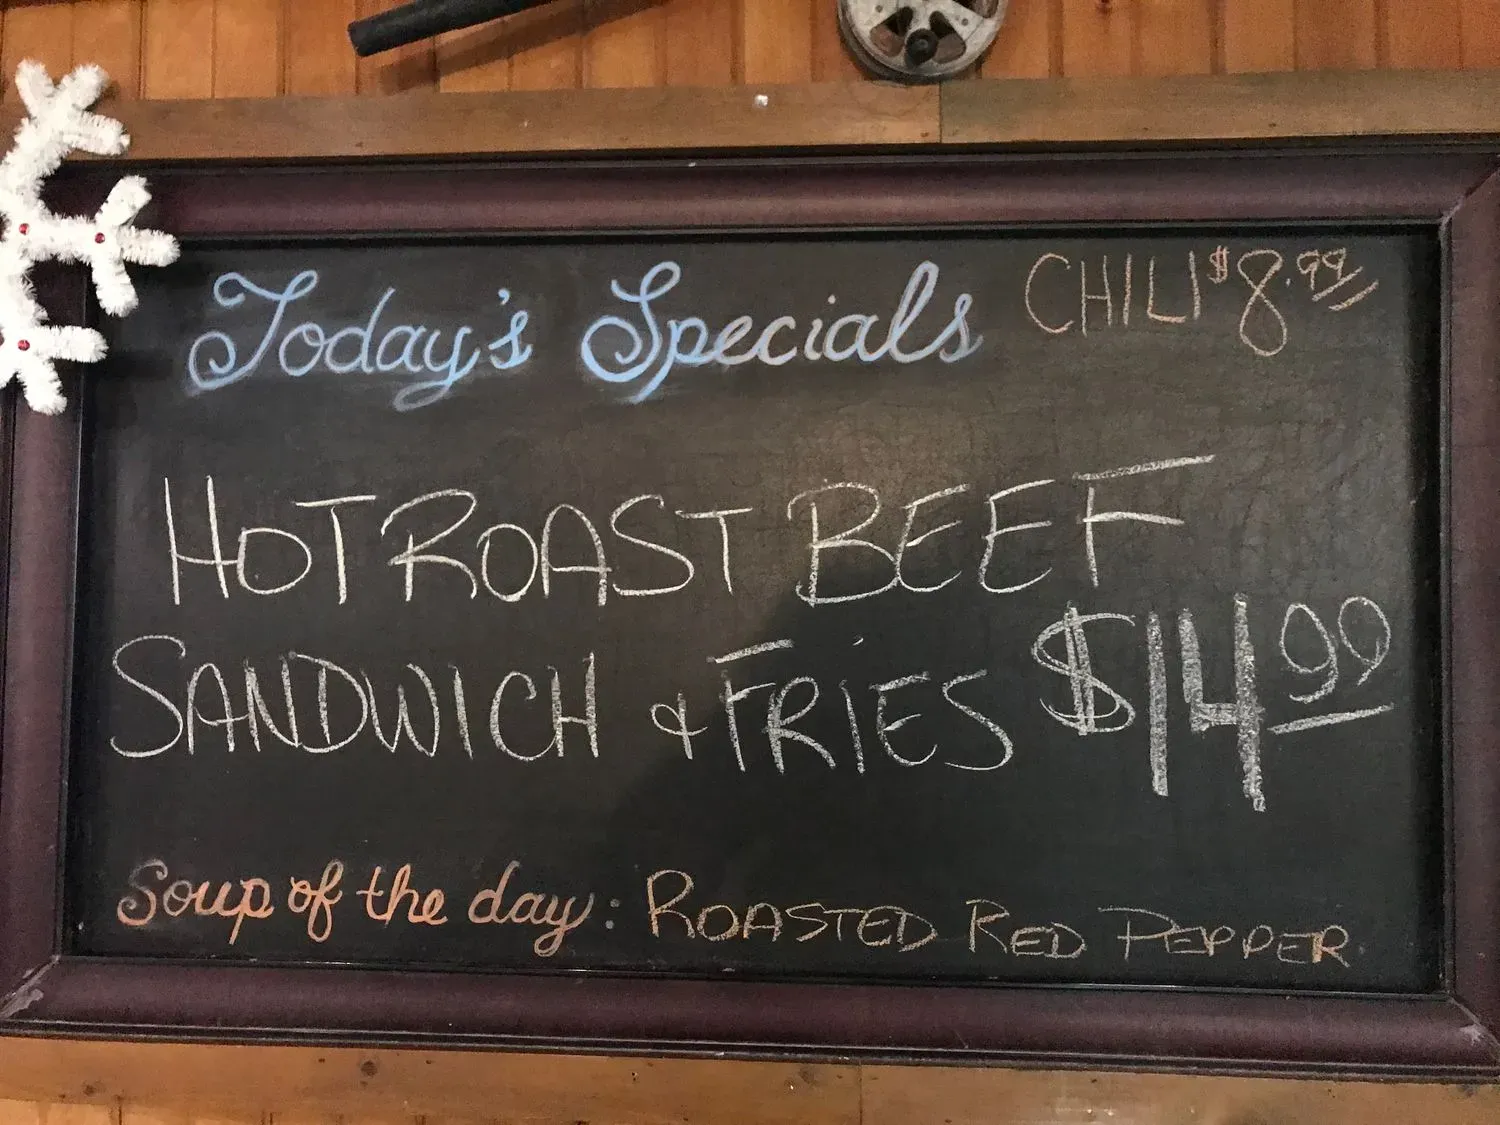 Today's Specials
CHILI $8.99
HOT ROAST BEEF
SANDWICH & FRIES $14.99
Soup of the day: ROASTED RED PEPPER